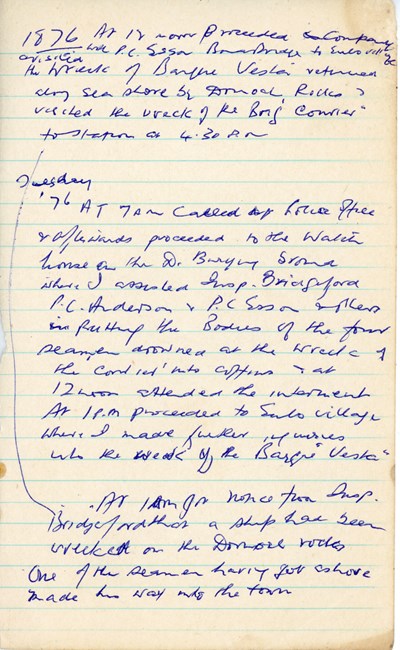 1876 At 12 noon Proceeded Company
with P.C. Sisson Bonar Bridge to Embo village
& visited
the Wreck of Barque Vesta returned
along sea shore by Dornoch Rocks &
visited the wreck of the Brig Courier"
to Station at 4.30 PM
Tuesday
'76 AT 7 am Called at Police Office
& afterwards proceeded to the Watch
house on the D. Burying Ground
where I assisted Insp. Bridgeford
P.C. Anderson & P.C. Sisson & others
in Putting the Bodies of the four
seamen drowned at the wreck of
the Courier into coffins & at
12 noon attended the interment
At 1 P.M proceeded to Embo village
where I made further inquiries
into the wreck of the Barque "Vesta"
At 1 am got notice from Insp.
Bridgeford that a ship had been
wrecked on the Dornoch rocks
One of the seamen having got ashore
made his way into the town